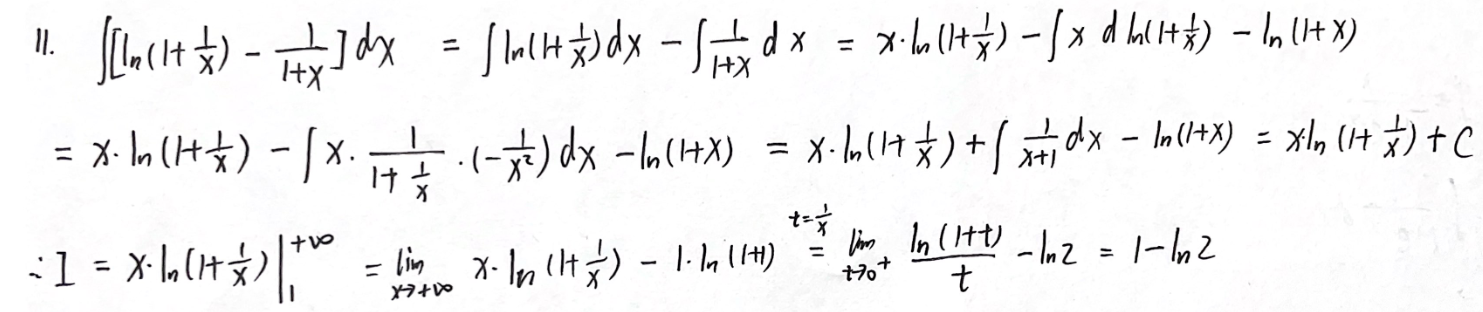 11. ∫[ln(1+1/x) - 1/(1+x)]dx = ∫ln(1+1/x)dx - ∫1/(1+x) dx = x·ln(1+1/x) - ∫x d ln(1+1/x) - ln(1+x)
= x·ln(1+1/x) - ∫x·1/(1+1/x)·(-1/x²)dx - ln(1+x) = x·ln(1+1/x) + ∫1/(x+1)dx - ln(1+x) = xln(1+1/x)+C
∴I = x·ln(1+1/x)|₁^{+∞} = lim_{x→+∞} x·ln(1+1/x) - 1·ln(1+1) =^{t=1/x} lim_{t→0⁺} ln(1+t)/t - ln2 = 1-ln2